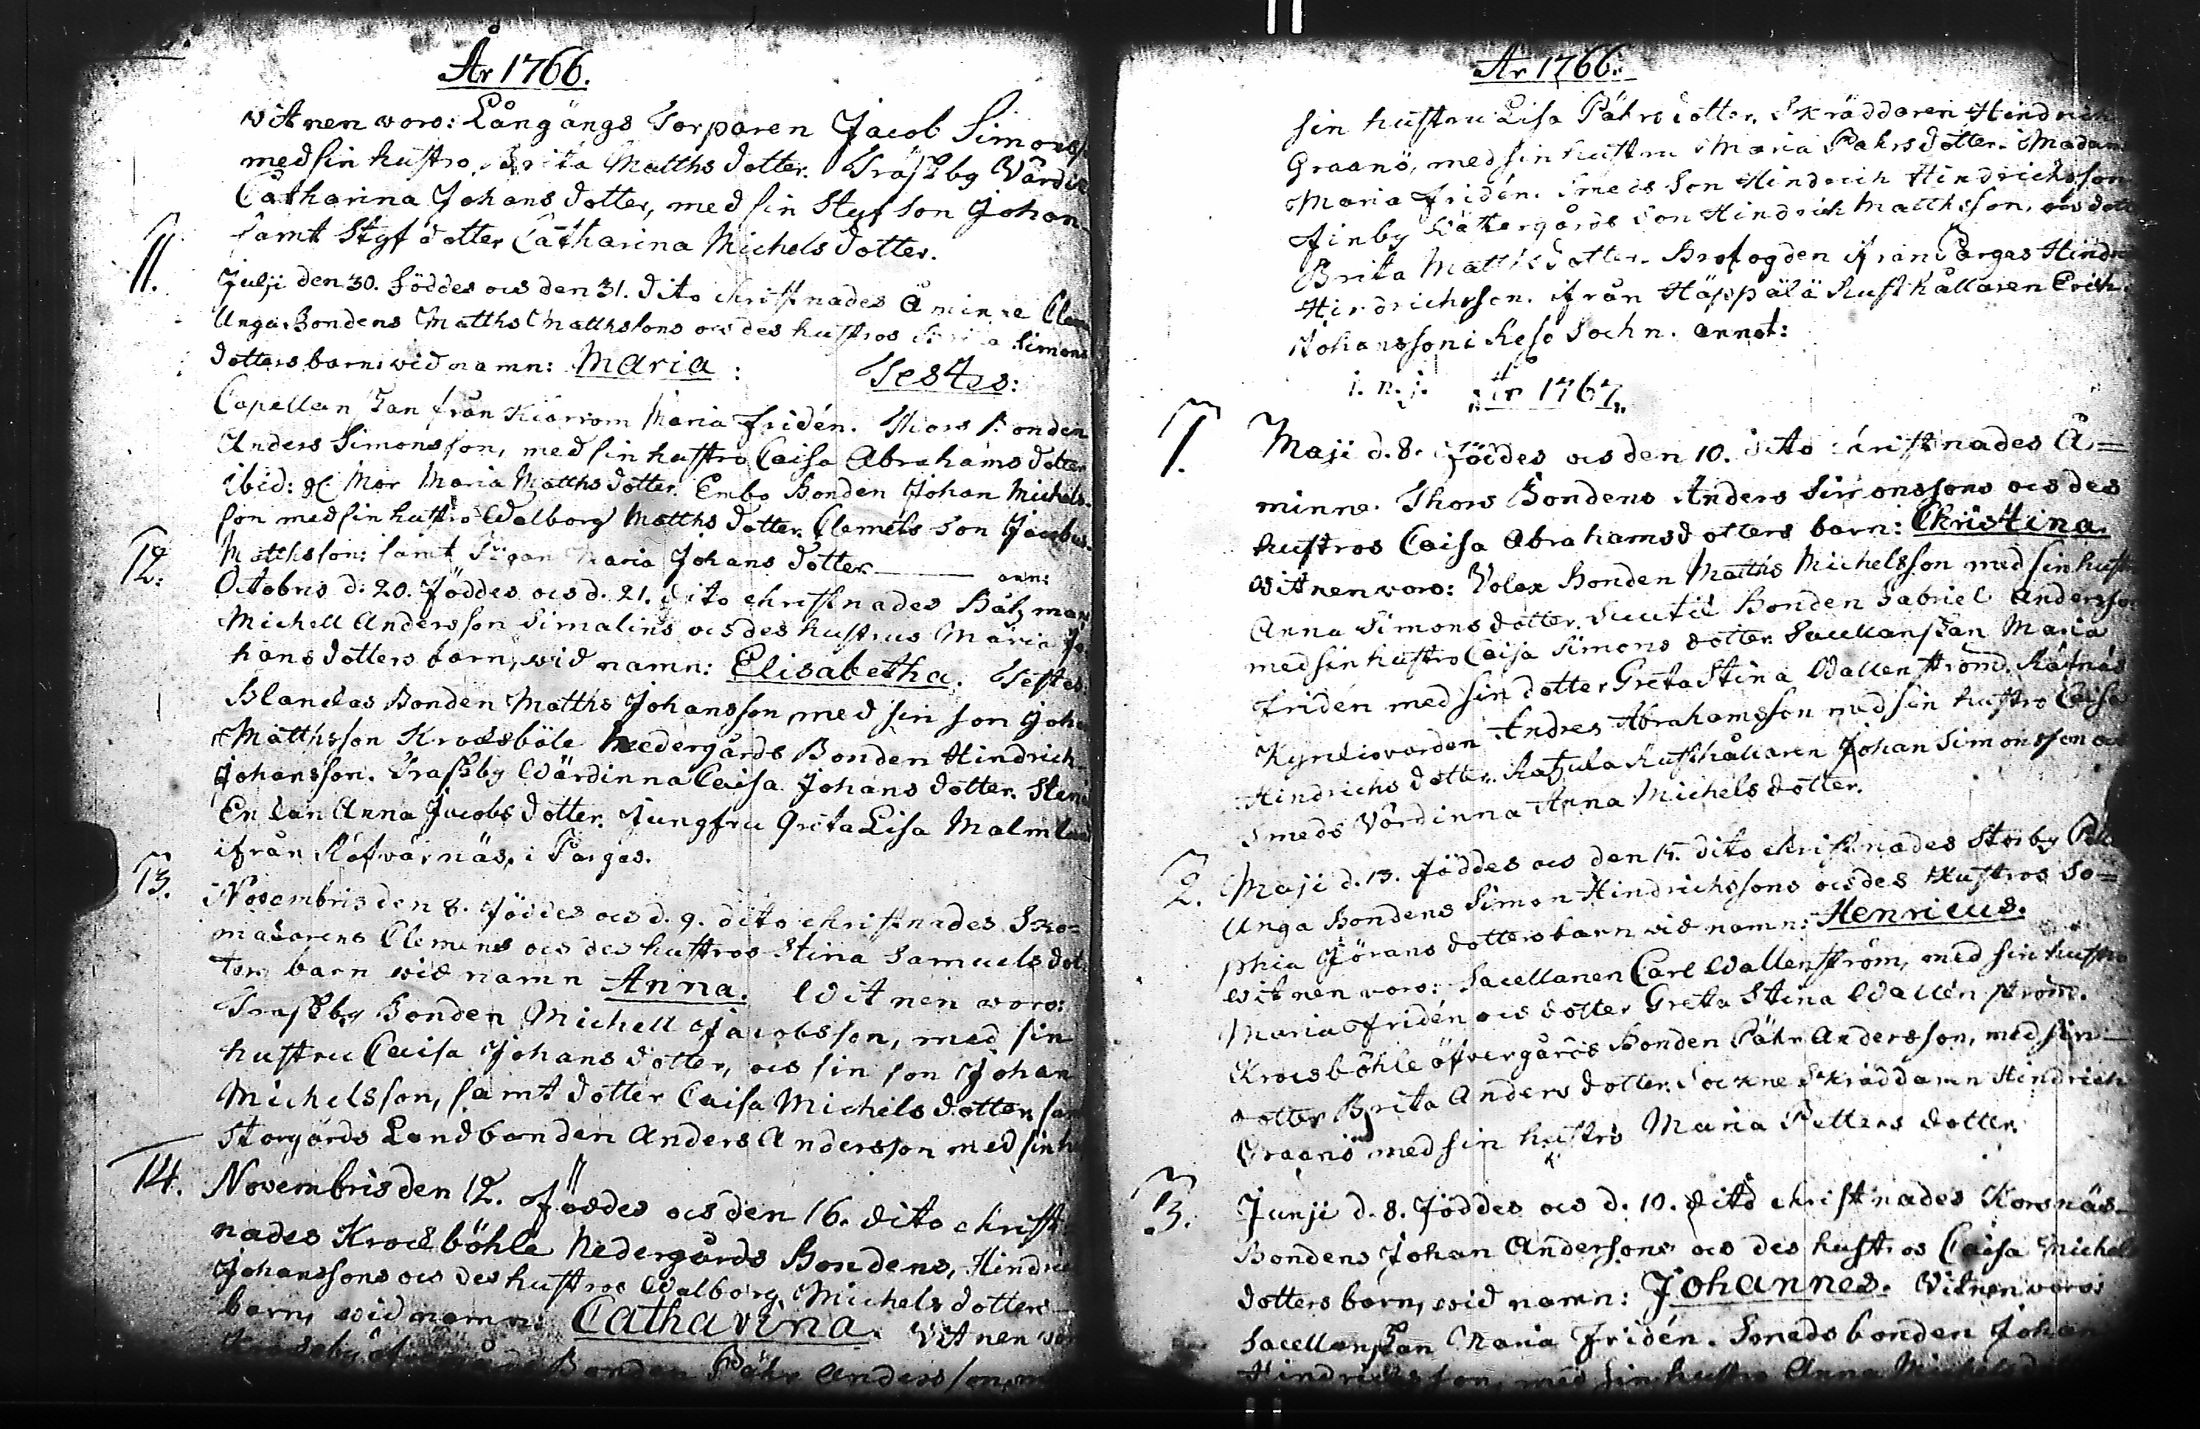 År 1766.
vitnen voro: Långängs Torparen Jacob Simons
med sin hustro Brita Matths dotter. Traskby Värdin
Catharina Johans dotter, med sin Styf son Johan
samt Styf dotter Catharina Michels dotter.
11. Julji den 30. föddes ocs den 31. dito christnades Åminne
Unga Bondens Matths Matthssons ocs des hustros Simons
dotters barn, vid namn: Maria: Testes:
Capellan från Maria Fridén. Thors Bonden
Anders Simonsson, med sin hustro Caisa Abrahams dotter
ibid: Mor Maria Matths dotter. Embo Bonden Johan Michels-
son med sin hustro Walborg Matths dotter. Clemets Son Jacobus
Matthsson: samt Maria Johans dotter — ann:
12. Octobris d. 20. föddes ocs d. 21. dito christnades Båtzman
Michell Andersson Simalins ocs des hustrus Maria Jo
hans dotters barn, vid namn: Elisabetha. Testes:
Blandas Bonden Matths Johansson, med sin son Joha
Matthsson Krocsböle Nedergårds Bonden Hindrich
Johansson. Traskby Wärdinna Caisa Johans dotter.
Enkan Anna Jacobs dotter. Jungfru Greta Lisa Malm
ifrån Räfvarnäs, i Pargas.
13. Novembris den 8. föddes ocs d. 9. dito christnades Sko=
makarens Clemens ocs des hustros Stina Samuels dot
ters barn vid namn Anna. Witnen woro:
Traskby Bonden Michell Jacobsson, med sin
hustru Caisa Johans dotter, ocs sin son Johan
Michelsson, samt dotter Caisa Michels dotter, sam
Storgårds Landbonden Anders Andersson med sin h
14. Novembris den 12. föddes ocs den 16. dito christ
nades Krocsböhle Nedergårds Bondens, Hindric
Johanssons ocs des hustros Walborg Michels dotters
barn, vid namn: Catharina. Vitnen vor
Bonden Pähr Andersson, m
År 1766.
sin hustru Lisa Pährs dotter. Skräddaren Hindrich
Graanö, med sin hustru Maria Pährs dotter. Madam
Maria Fridén. Smeds Son Hindrich Hindrichsson
Finby Säkergårds Son Hindrich Matthsson, ocs dott
Brita Matths dotter. Brofogden ifrån Pargas Hindri
Hindrichsson. ifrån Häppälä Rusthållaren Erich
Johansson i Reso Sochn. annot:
i. n. j. År 1767.
1. Maji d. 8. föddes ocs den 10. dito christnades Å=
minne. Thors Bondens Anders Simonssons ocs des
hustros Caisa Abrahamsdotters barn: Christina.
vitnen voro: Bonden Matths Michelsson med sin hust
Anna Simons dotter. Bonden Gabriel Andersson
med sin hustro Caisa Simons dotter. Sacellanskan Maria
Fridén med sin dotter Greta Stina Wallenström. Räfnäs
Andres Abrahamsson med sin hustro Caisa
Hindrichs dotter. Rusthållaren Johan Simonsson oc
Smeds Värdinna Anna Michels dotter.
2. Maji d. 13. föddes ocs den 15. dito christnades Storby
Unga Bondens Simon Hindrichssons ocs des hustros So=
phia Jörans dotters barn vid namn: Henricus.
vitnen voro: Sacellanen Carl Wallenström, med sin hustru
Maria Fridén ocs dotter Greta Stina Wallenström.
Krocsböhle öfvergårds Bonden Pähr Andersson, med sin
dotter Brita Anders dotter. Sockne Skräddarn Hindrich
Graanö med sin hustro Maria Petters dotter.
3. Junji d. 8. föddes ocs d. 10. dito christnades Korsnäs
Bondens Johan Andersons ocs des hustros Caisa Michels
dotters barn, vid namn: Johannes. Vitnen voro:
Sacellanskan Maria Fridén. Smeds bonden Johan
Hindrichsson, med sin hustro Anna Michels d